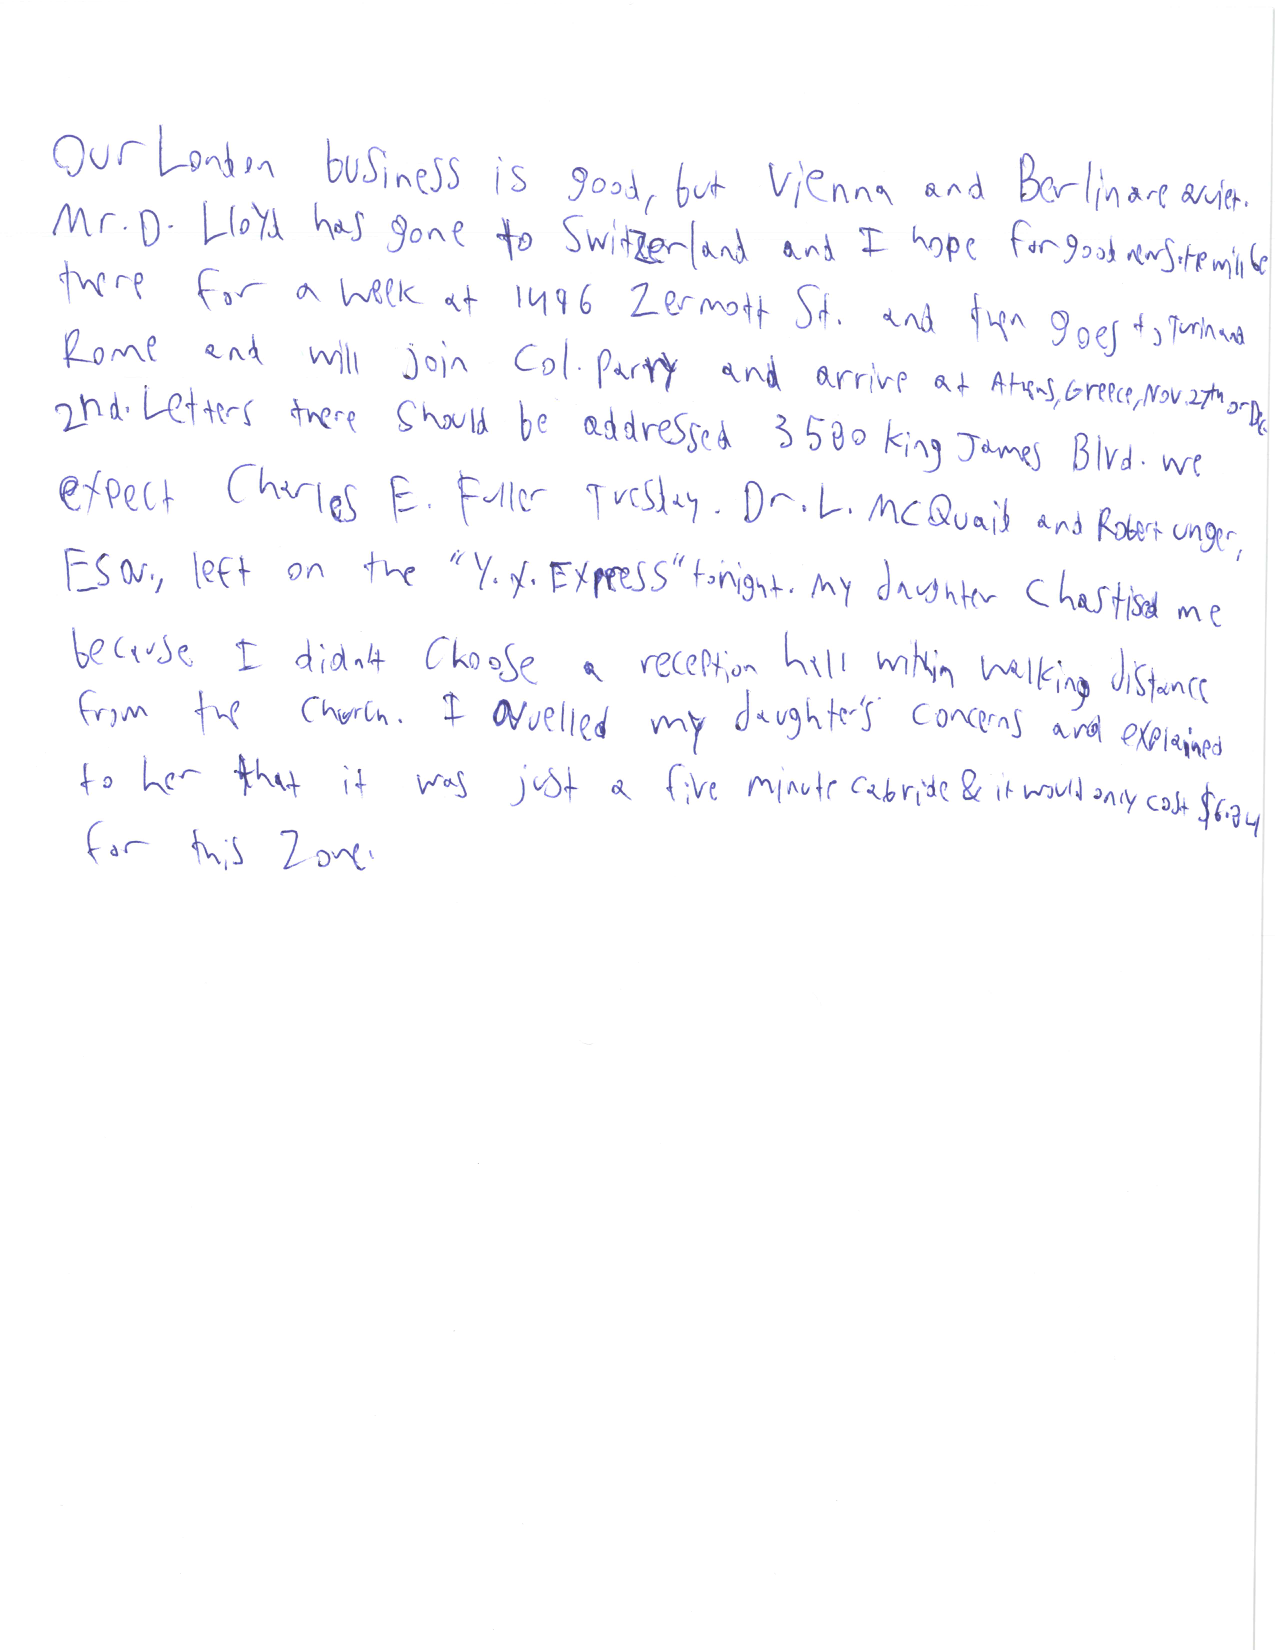 Our London business is good, but Vienna and Berlin are quiet.
Mr. D. Lloyd has gone to Switzerland and I hope for good news. He will be
there for a week at 1496 Zermott St. and then goes to Turin and
Rome and will join Col. Parry and arrive at Athens, Greece, Nov. 27th or Dec.
2nd. Letters there should be addressed 3580 King James Blvd. We
expect Charles E. Fuller Tuesday. Dr. L. McQuaid and Robert Unger,
Esq., left on the "Y. X. Express" tonight. My daughter chastised me
because I didn't choose a reception hall within walking distance
from the church. I quelled my daughter's concerns and explained
to her that it was just a five minute cab ride & it would only cost $6.84
for this zone.